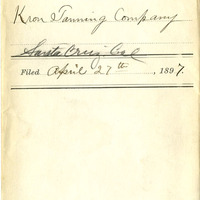 Kron Tanning Company
Santa Cruz Cal
Filed April 27th, 1897.